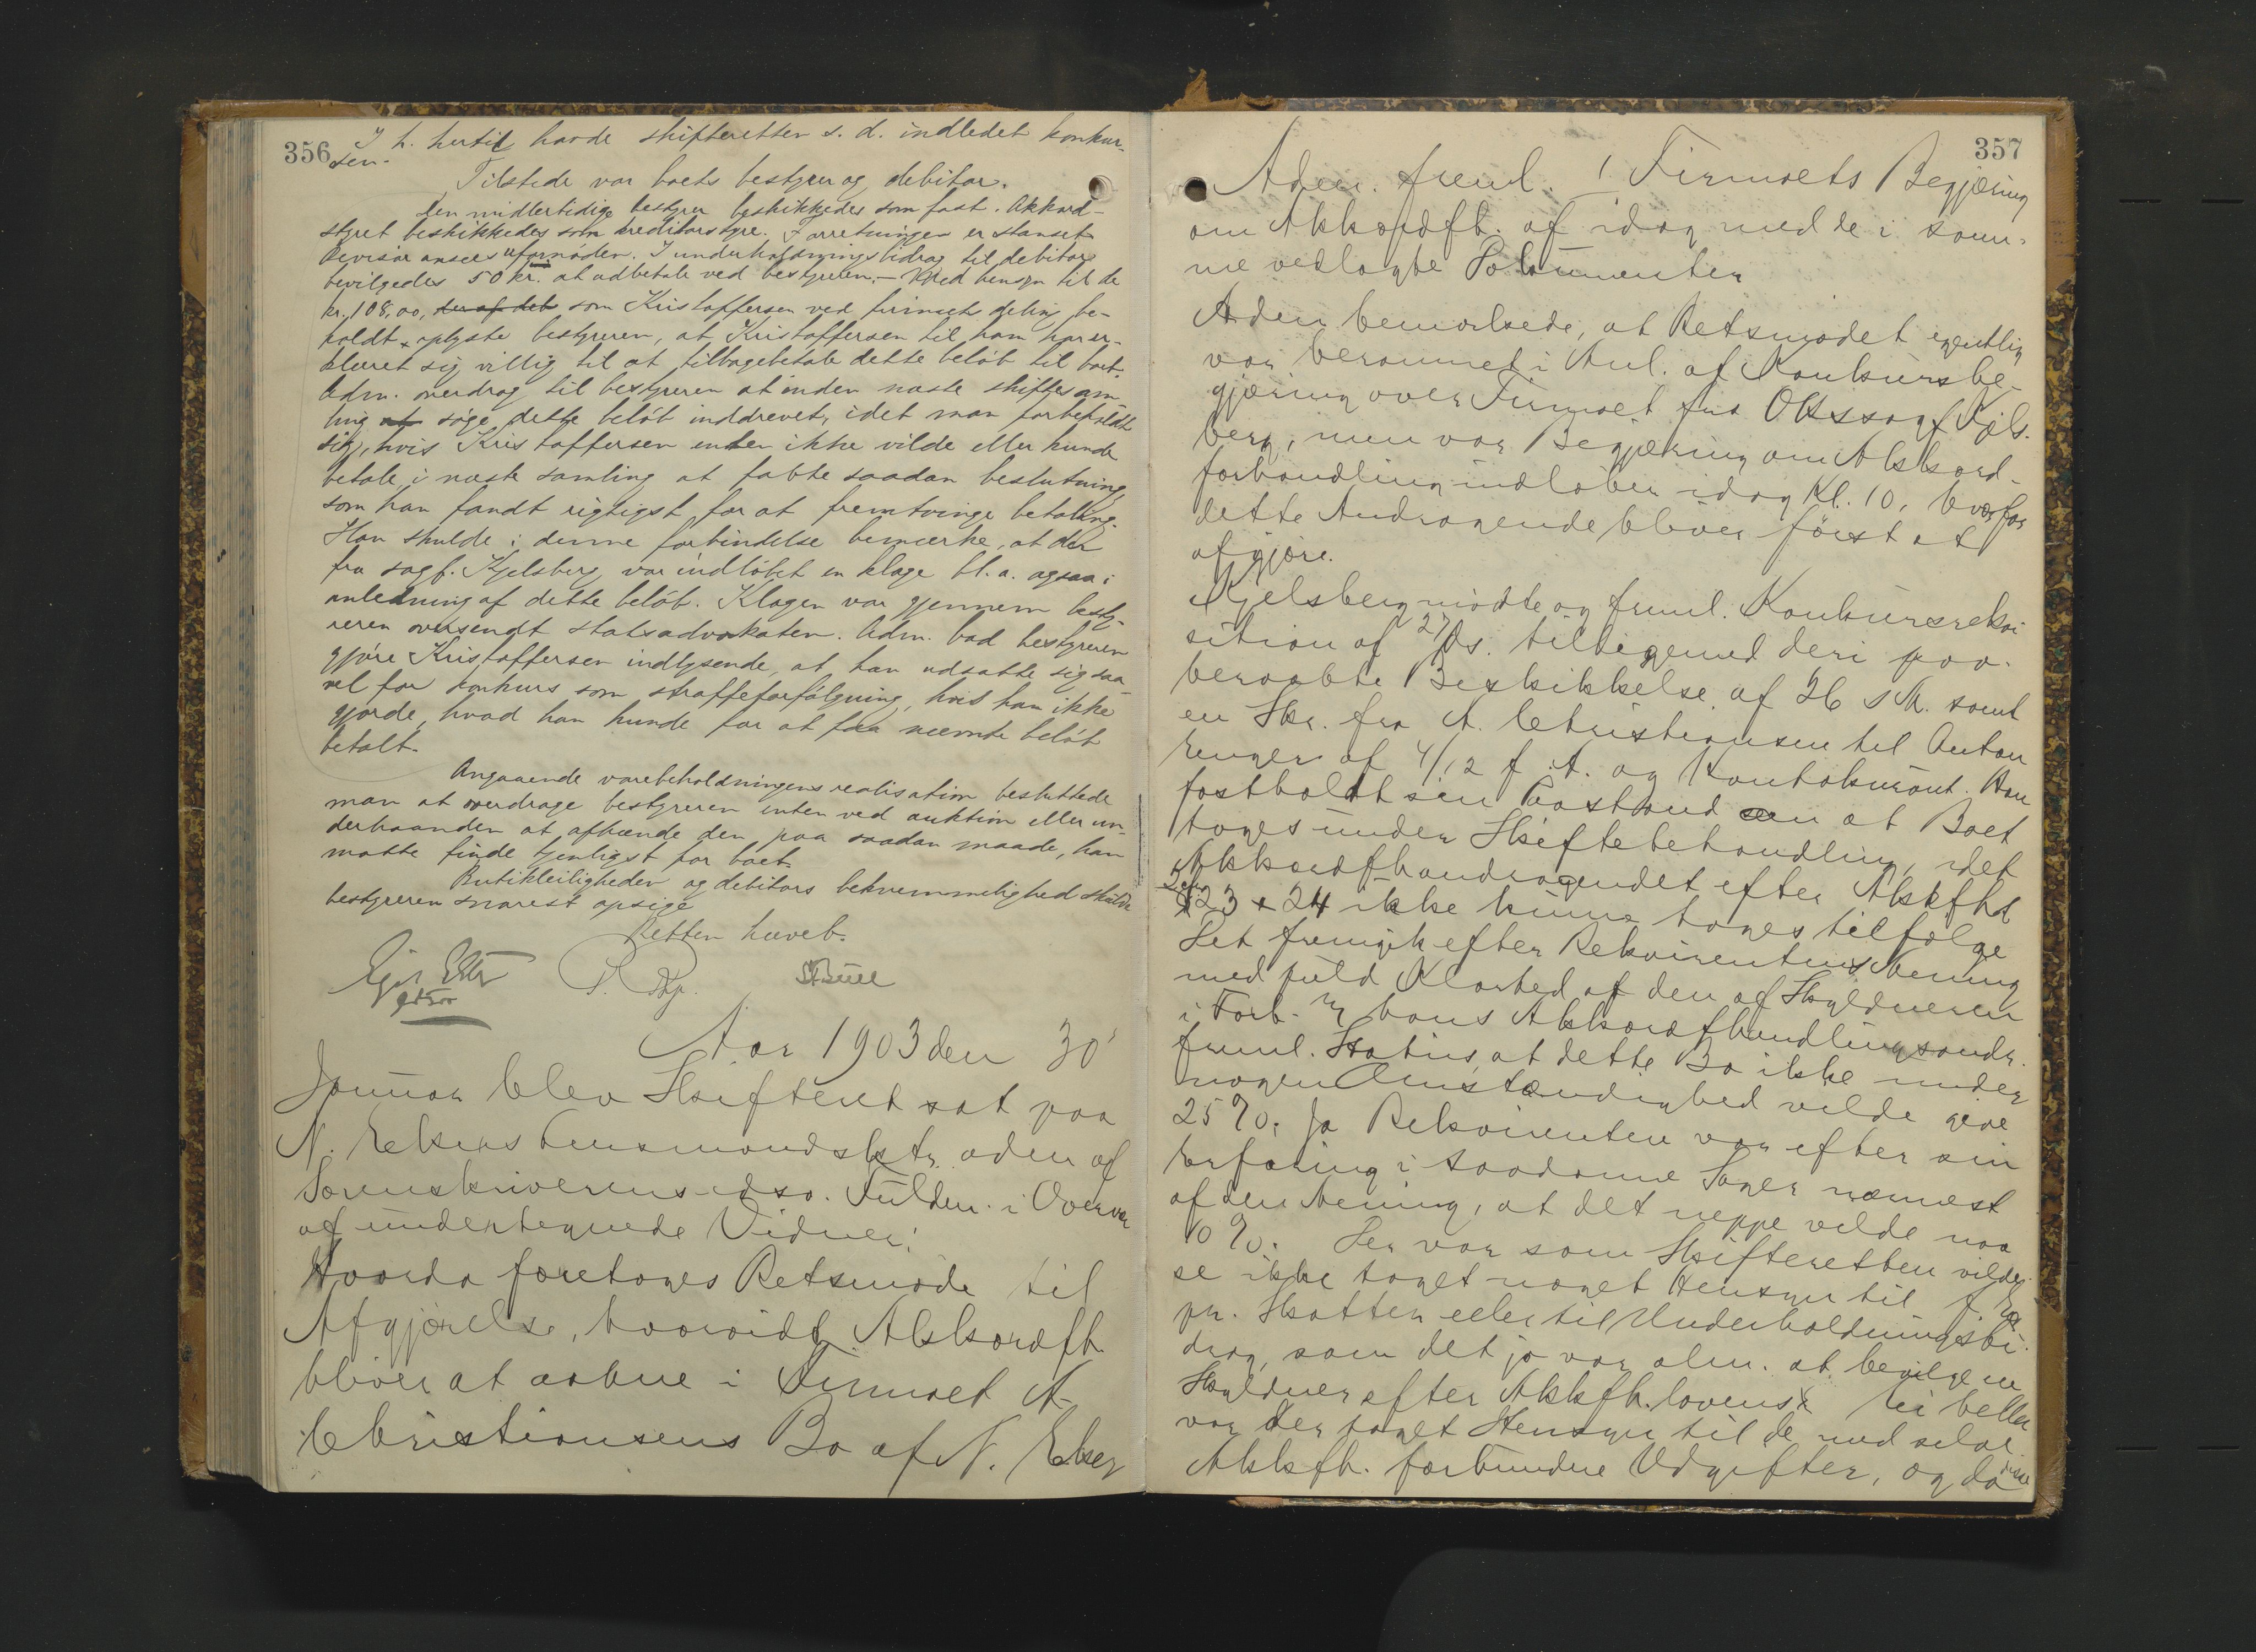 356
I h. hertil havde skifteretten s. d. indledet konkur-
sen.
Tilstede var boets bestyrer og debitor.
Den midlertidige bestyrer beskikkedes som fast. Akkord-
styret beskikkedes som kreditorstyre. Forretningen er stanset
Revisor ansees ufornøden. I underholdningsbidrag til debitor
bevilgedes 50 kr. at udbetale ved bestyreren. – Med hensyn til de
kr. 108,00, som Kristoffersen ved firmaets deling be-
holdt, oplyste bestyreren, at Kristoffersen til ham har er-
klæret sig villig til at tilbagebetale dette beløb til boet.
Adm. overdrog til bestyreren at inden næste skiftesam-
ling at søge dette beløb inddrevet, idet man forbeholdt
sig, hvis Kristoffersen enten ikke vilde eller kunde
betale, i næste samling at fatte saadan beslutning,
som han fandt rigtigst for at fremtvinge betaling.
Han skulde i denne forbindelse bemærke, at der
fra sagf. Kjelsberg var indløbet en klage bl. a. ogsaa i
anledning af dette beløb. Klagen var gjennem besty-
reren oversendt statsadvokaten. Adm. bad bestyreren
gjøre Kristoffersen indlysende, at han udsatte sig saa-
vel for konkurs som straffeforfølgning, hvis han ikke
gjorde, hvad han kunde for at faa nævnte beløb
betalt.
Angaaende varebeholdningens realisation besluttede
man at overdrage bestyreren enten ved auktion eller un-
derhaanden at afhænde den paa saadan maade, han
maatte finde tjenligst for boet.
Butikleiligheden og debitors bekvemmelighed skulde
bestyreren snarest opsige
Retten hævet.
Aar 1903 den 30'
Januar blev Skifteret sat paa
N. Eker Lensmandsktr. adm. af
Sorenskriverens edsv. Fuldm. i Overvær
af undertegnede Vidner:
Hvorda foretoges Retsmøde til
Afgjørelse, hvorvidt Akkordfh.
bliver at aabne i Firmaet A.
Christiansens Bo af N. Eker
357
Adm. freml. 1 Firmaets Begjæring
om Akkordfh. af idag med de i sam-
me vedlagte Dokumenter
Adm. bemærkede, at Retsmødet egentlig
var berammet i Anl. af Konkursbe-
gjæring over Firmaet fra Ossagf. Kjels-
berg, men var Begjæring om Akkord-
forhandling indløben idag Kl. 10, hvorfor
dette Andragende bliver først at
afgjøre.
Kjelsberg mødte og freml. Konkursrekvi-
sition af 27 ds. tilligemed deri paa-
beraabte Beskikkelse af 26 s M. samt
en Skr. fra A. Christiansen til Anton
Enger af 4/12 f. A. og Kontokurant. Han
fastholdt sin Paastand om at Boet
toges under Skiftebehandling, idet
Akkordfhandragendet efter Akkfhl
§ 23 & 24 ikke kunne tages tilfølge
Det fremgik efter Rekvirentens Mening
med fuld Klarhed af den af Skyldneren
i Forb. m hans Akkordfhandlingsandr.
freml. Status, at dette Bo ikke under
nogen Omstændighed vilde give
25 %. Ja Rekvirenten var efter sin
Erfaring i saadanne Sager nærmest
af den Mening, at det neppe vilde naa
10 %. Der var som Skifteretten vilde
se ikke taget noget Hensyn til f. Ex.
pr. Skatter eller til Underholdningsbi-
drag, som det jo var alm. at bevilge en
Skyldner efter Akkfh.lovens. Ei heller
var der taget Hensyn til de med selve
Akkfh. forbundne Udgifter, og da disse